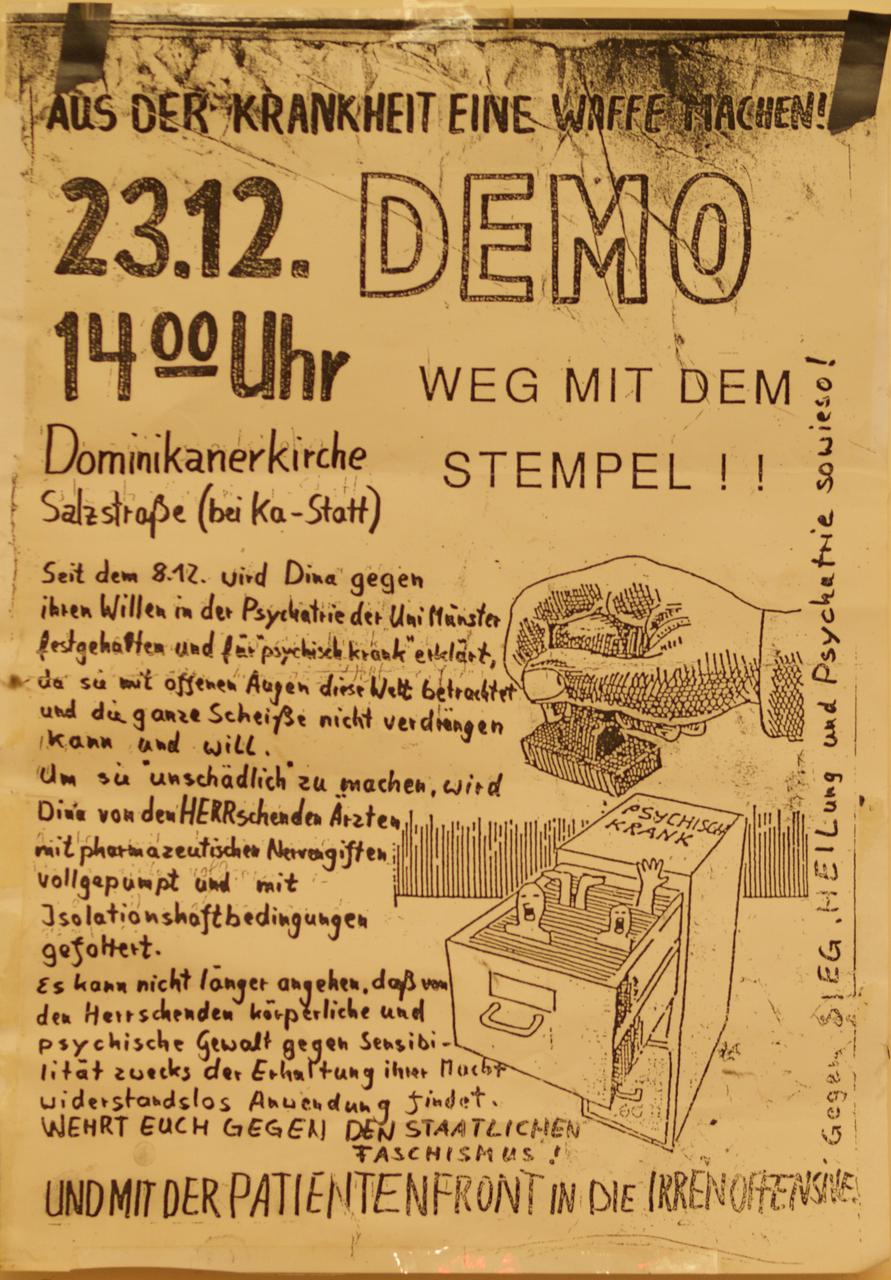 AUS DER KRANKHEIT EINE WAFFE MACHEN!
23.12. DEMO
14 00 Uhr
WEG MIT DEM
STEMPEL ! !
Dominikanerkirche
Salzstraße (bei Ka-Statt)
Seit dem 8.12. wird Dina gegen
ihren Willen in der Psychatrie der Uni Münster
festgehalten und für "psychisch krank" erklärt,
da sie mit offenen Augen diese Welt betrachtet
und die ganze Scheiße nicht verdrängen
kann und will.
Um sie "unschädlich" zu machen, wird
Dina von den HERRschenden Ärzten
mit pharmazeutischen Nervengiften
vollgepumpt und mit
Isolationshaftbedingungen
gefoltert.
Es kann nicht länger angehen, daß von
den Herrschenden körperliche und
psychische Gewalt gegen Sensibi-
lität zwecks der Erhaltung ihrer Macht
widerstandslos Anwendung findet.
WEHRT EUCH GEGEN DEN STAATLICHEN
FASCHISMUS !
UND MIT DER PATIENTENFRONT IN DIE IRRENOFFENSIVE.
PSYCHISCH
KRANK
Gegen SIEG, HEILung und Psychatrie sowieso!